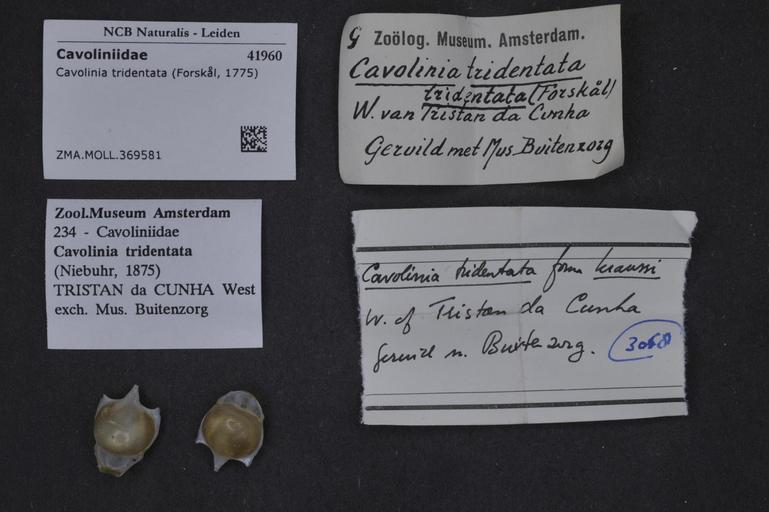 NCB Naturalis - Leiden
Cavoliniidae 41960
Cavolinia tridentata (Forskål, 1775)
ZMA.MOLL.369581
G Zoölog. Museum. Amsterdam.
Cavolinia tridentata
tridentata (Forskål)
W. van Tristan da Cunha
Geruild met Mus Buitenzorg
Zool.Museum Amsterdam
234 - Cavoliniidae
Cavolinia tridentata
(Niebuhr, 1875)
TRISTAN da CUNHA West
exch. Mus. Buitenzorg
Cavolinia tridentata forma kraussi
W. of Tristan da Cunha
Geruild m. Buitenzorg.